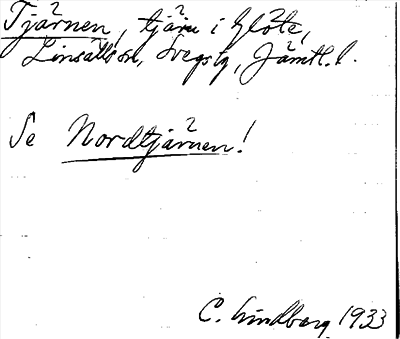 Tjärnen, tjärn i Glöte,
Linsälls sn, Svegs tg, Jämtl. l.
Se Nordtjärnen!
C. Lindberg 1933